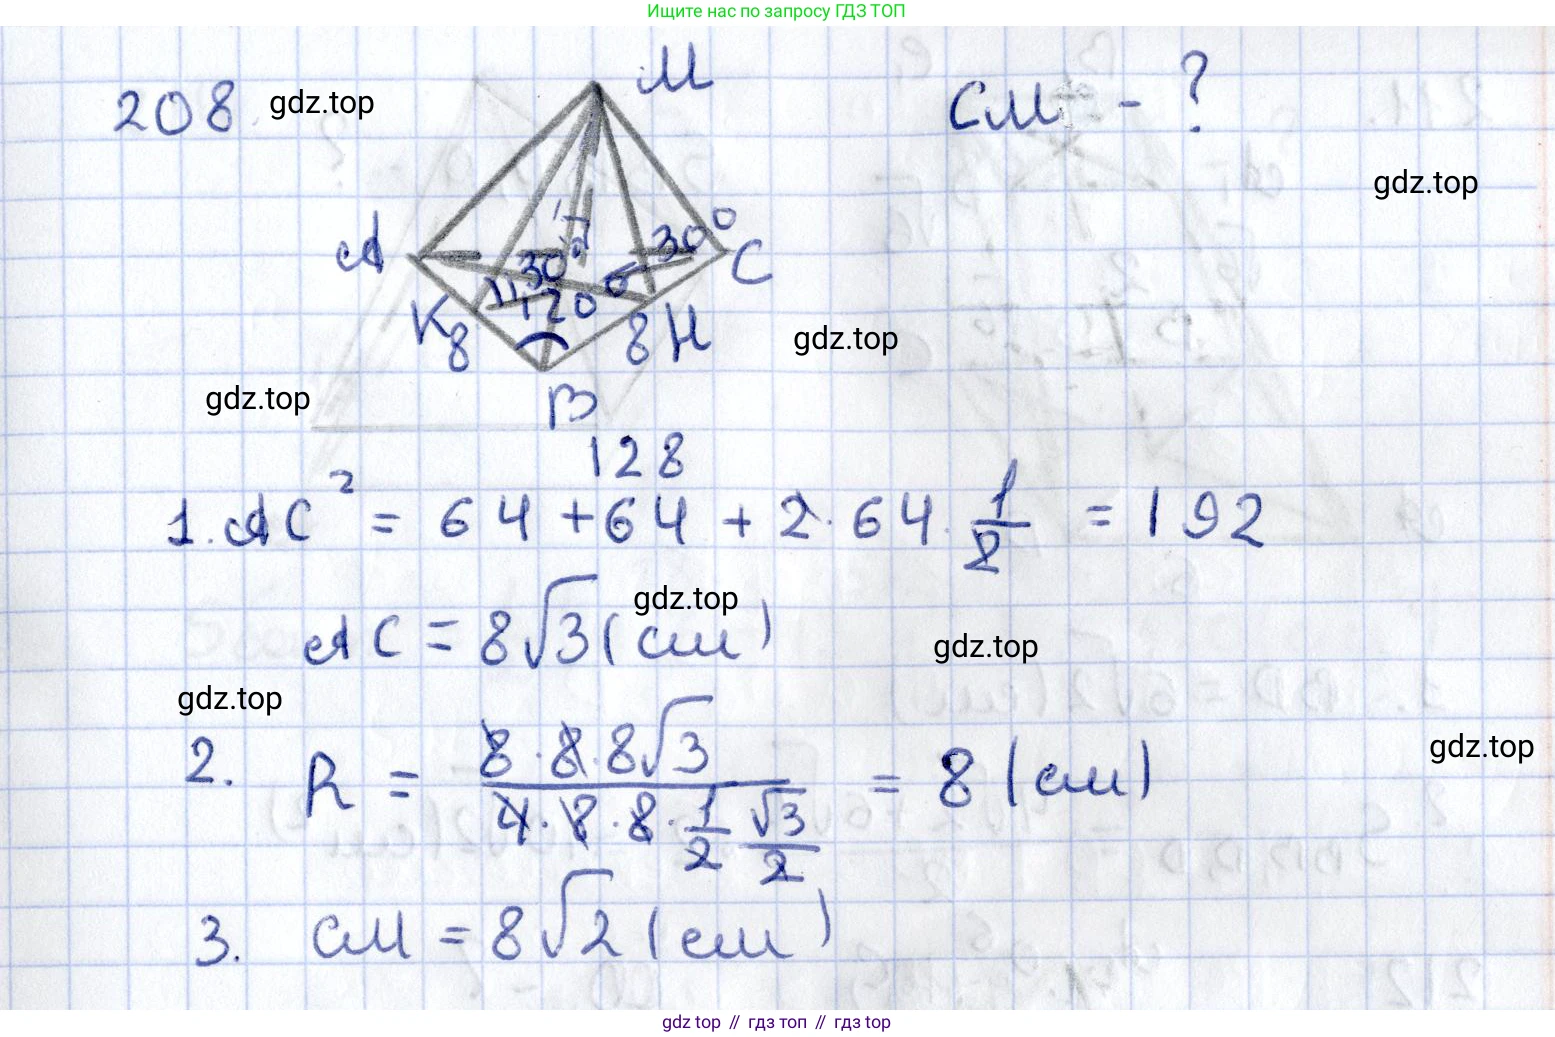 Ищите нас по запросу ГДЗ ТОП
208 gdz.top M CM - ?
gdz.top
A 30° C
30 6
K 120
8 8 H gdz.top
gdz.top B
128
1. AC² = 64 + 64 + 2 · 64 · 1/2 = 192
AC = 8√3 (см) gdz.top
gdz.top
gdz.top
2. R = 8 · 8 · 8√3 / 4 · 8 · 8 · 1/2 √3/2 = 8 (см) gdz.top
3. CM = 8√2 (см)
gdz top // гдз топ // гдз top